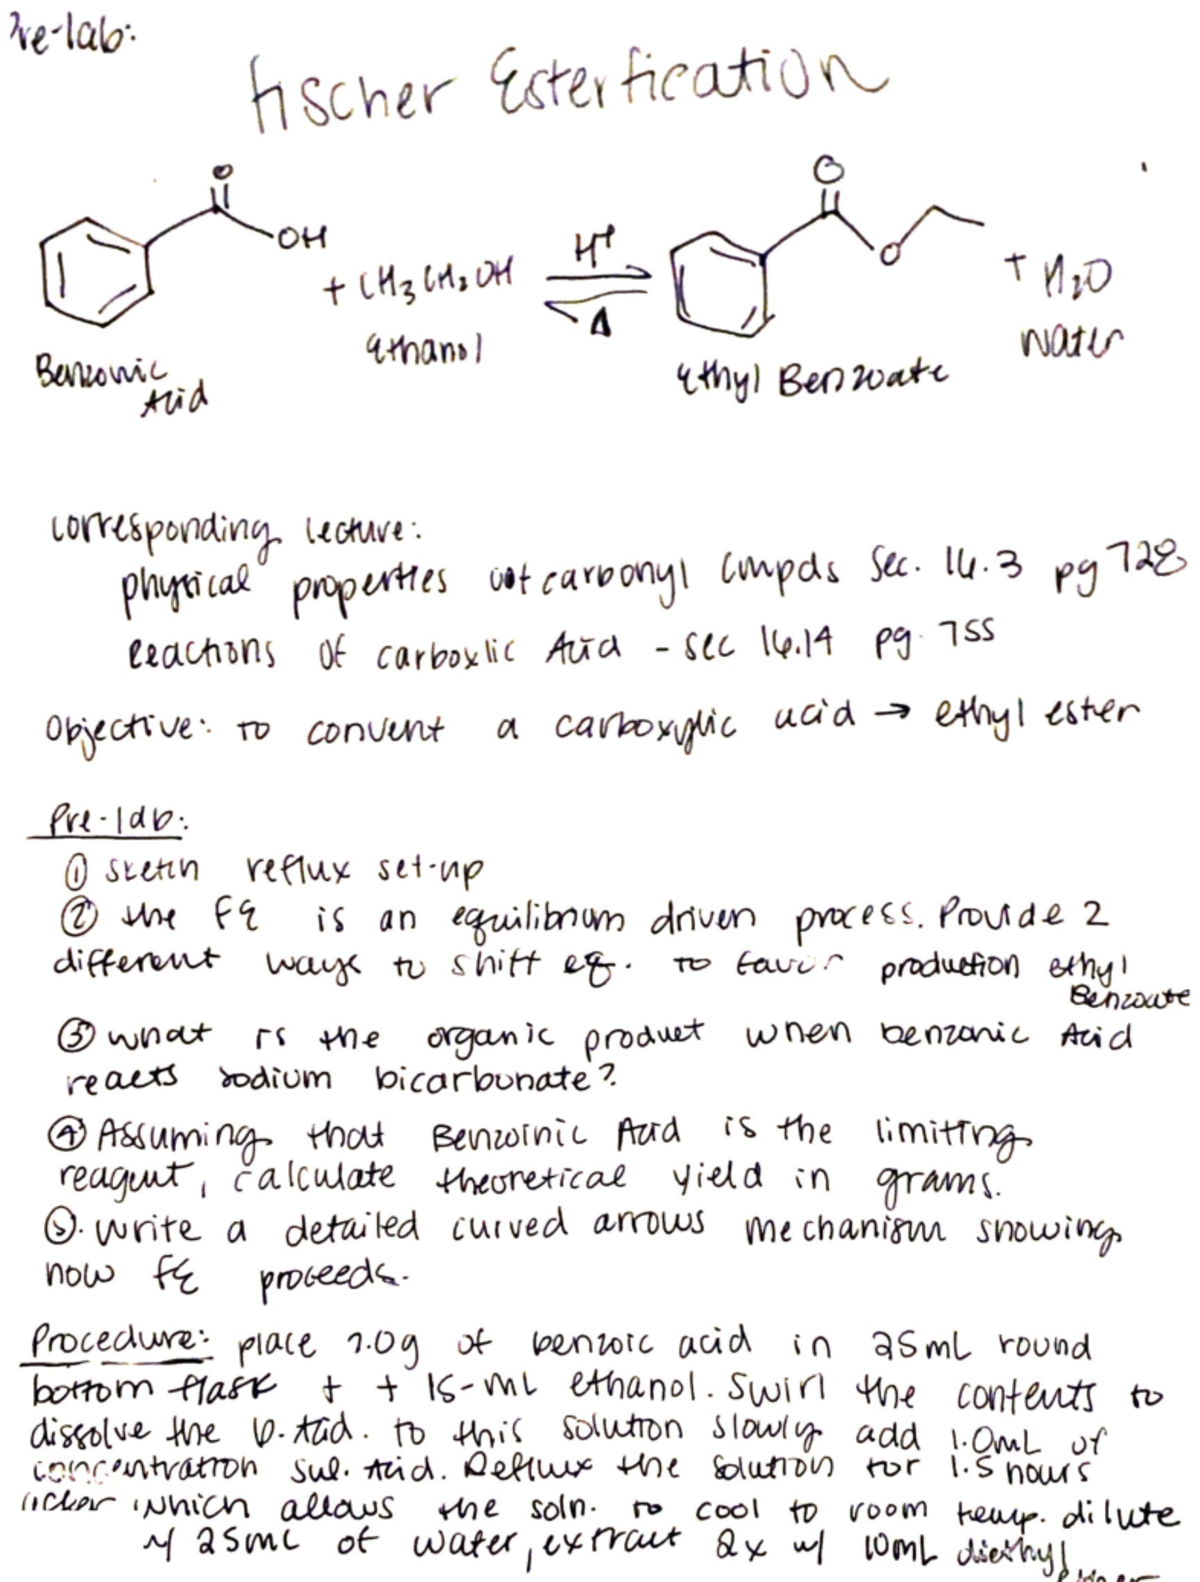 Pre-lab:
Fischer Esterfication
O
O
OH
H+
+ CH3CH2OH
O
+ H2O
Δ
Ethanol
Water
Benzonic
Acid
Ethyl Benzoate
corresponding lecture:
physical properties of carbonyl cmpds Sec. 16.3 pg 728
reactions of carboxlic Acid - sec 16.14 pg. 755
Objective: to convent a carboxylic acid → ethyl ester
Pre-lab:
① sketch reflux set-up
② the FE is an equilibrium driven process. Provide 2
different ways to shift eq. to favor production ethyl
Benzoate
③ what is the organic product when benzonic Acid
reacts sodium bicarbonate?
④ Assuming that Benzoinic Acid is the limiting
reagent, calculate theoretical yield in grams.
⑤. write a detailed curved arrows mechanism showing
how FE proceeds.
Procedure: place 2.0g of benzoic acid in 25mL round
bottom flask + + 15-mL ethanol. Swirl the contents to
dissolve the b. Acid. to this solution slowly add 1.0mL of
concentration sul. Acid. Reflux the solution for 1.5 hours
which allows the soln. to cool to room temp. dilute
w/ 25mL of water, extract 2x w/ 10mL diethyl
ether